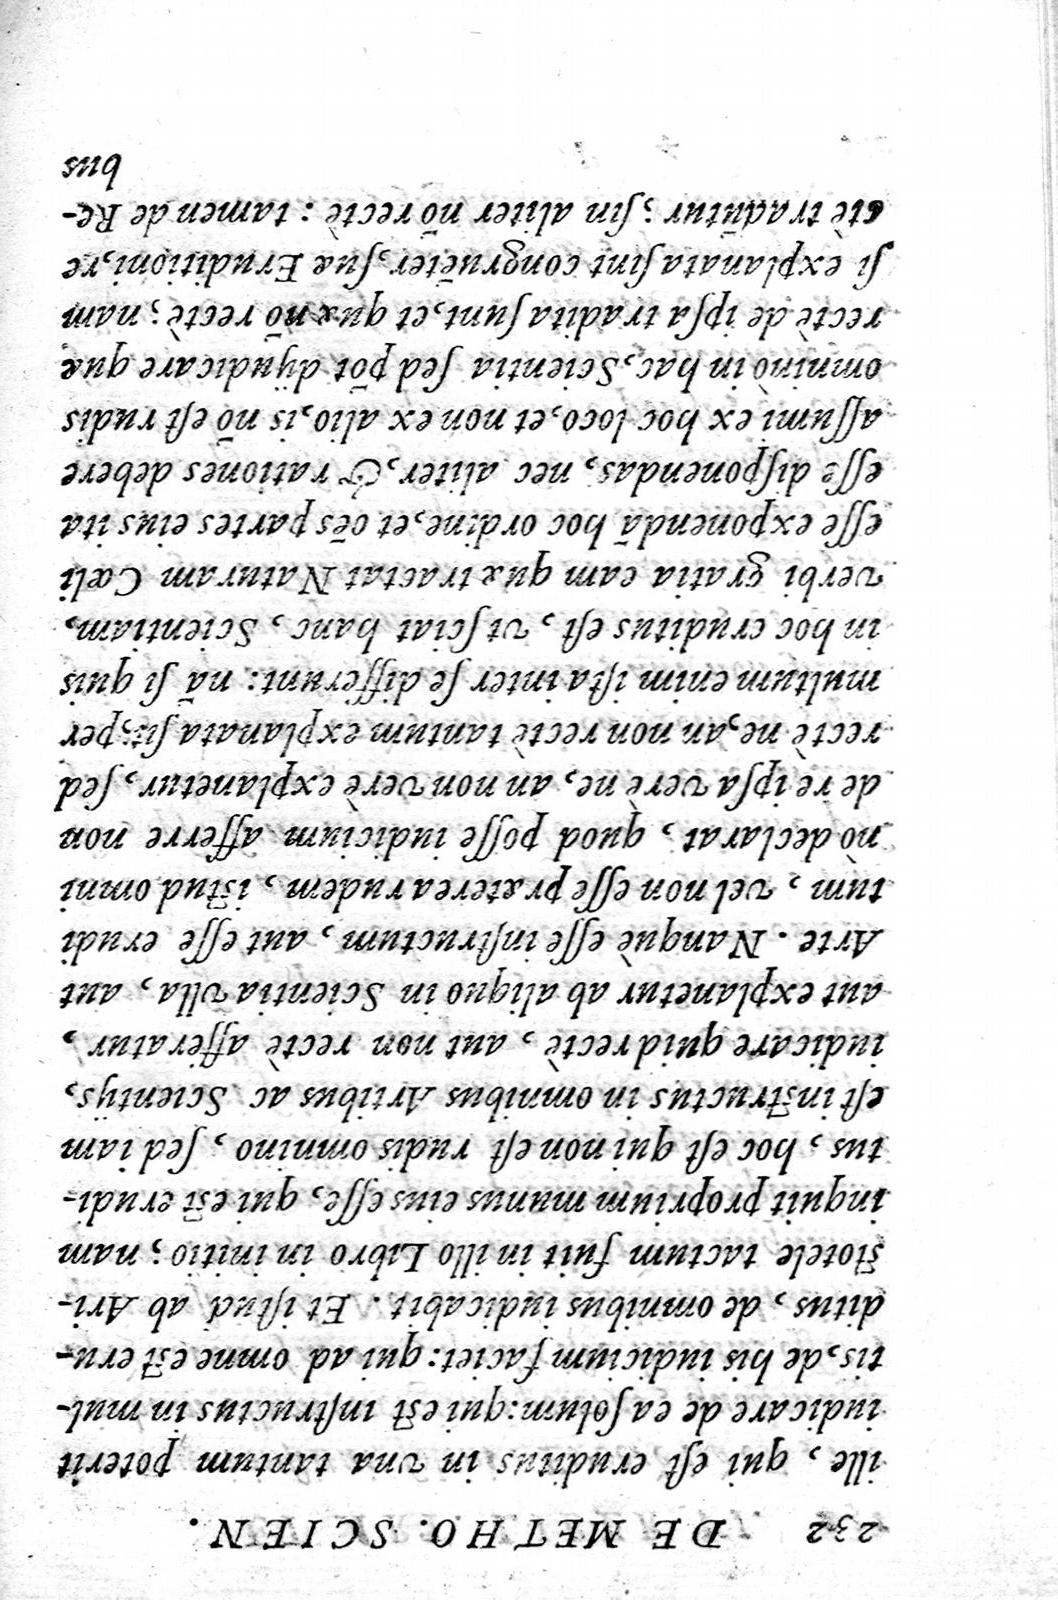 232 DE METHO. SCIEN.
ille, qui eſt eruditus in vna tantum poterit
iudicare de ea ſolum: qui eſt inſtructus in mul-
tis, de his iudicium faciet: qui ad omne eſt eru-
ditus, de omnibus iudicabit. Et iſtud ab Ari-
ſtotele tactum fuit in illo Libro in initio; nam
inquit proprium munus eius eſſe, qui eſt erudi-
tus, hoc eſt qui non eſt rudis omnino, ſed iam
eſt inſtructus in omnibus Artibus ac Scientijs,
iudicare quid rectè, aut non rectè afferatur,
aut explanetur ab aliquo in Scientia vlla, aut
Arte. Nanquè eſſe inſtructum, aut eſſe erudi
tum, vel non eſſe præterea rudem, iſtud omni
nò declarat, quod poſſe iudicium afferre non
de re ipſa verè ne, an non verè explanetur, ſed
rectè ne, an non rectè tantum explanata ſit; per
multum enim iſta inter ſe differunt: nā ſi quis
in hoc eruditus eſt, vt ſciat hanc, Scientiam,
verbi gratia eam quæ tractat Naturam Cœli
eſſe exponendā hoc ordine, et oēs partes eius ita
eſſe diſponendas, nec aliter, & rationes debere
aſſumi ex hoc loco, et non ex alio, is nō eſt rudis
omninò in hac, Scientia ſed pōt dijudicare quæ
rectè de ipſa tradita ſunt, et quæ nō rectè; nam
ſi explanata ſint congruēter, ſuæ Eruditioni, re
ctè tradūtur; ſin aliter nō rectè: tamen de Re-
bus